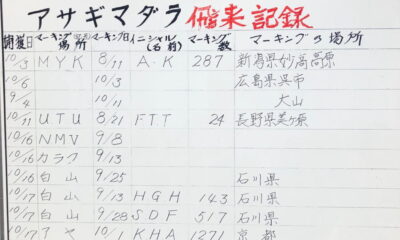 アサギマダラ 飛来記録
開催日 マーキング場所 マーキング日 イニシャル(名前) マーキング数 マーキングの場所
10/3 MYK 8/11 A・K 287 新潟県妙高高原
10/6 10/3 広島県呉市
9/4 10/11 大山
10/11 UTU 8/21 FTT 24 長野県美ヶ原
10/16 NMV 9/8
10/16 カラク 9/13
10/16 白山 9/25 石川県
10/17 白山 9/13 HGH 143 石川県
10/17 白山 9/28 SDF 517 石川県
10/17 10/1 KHA 1271 京都